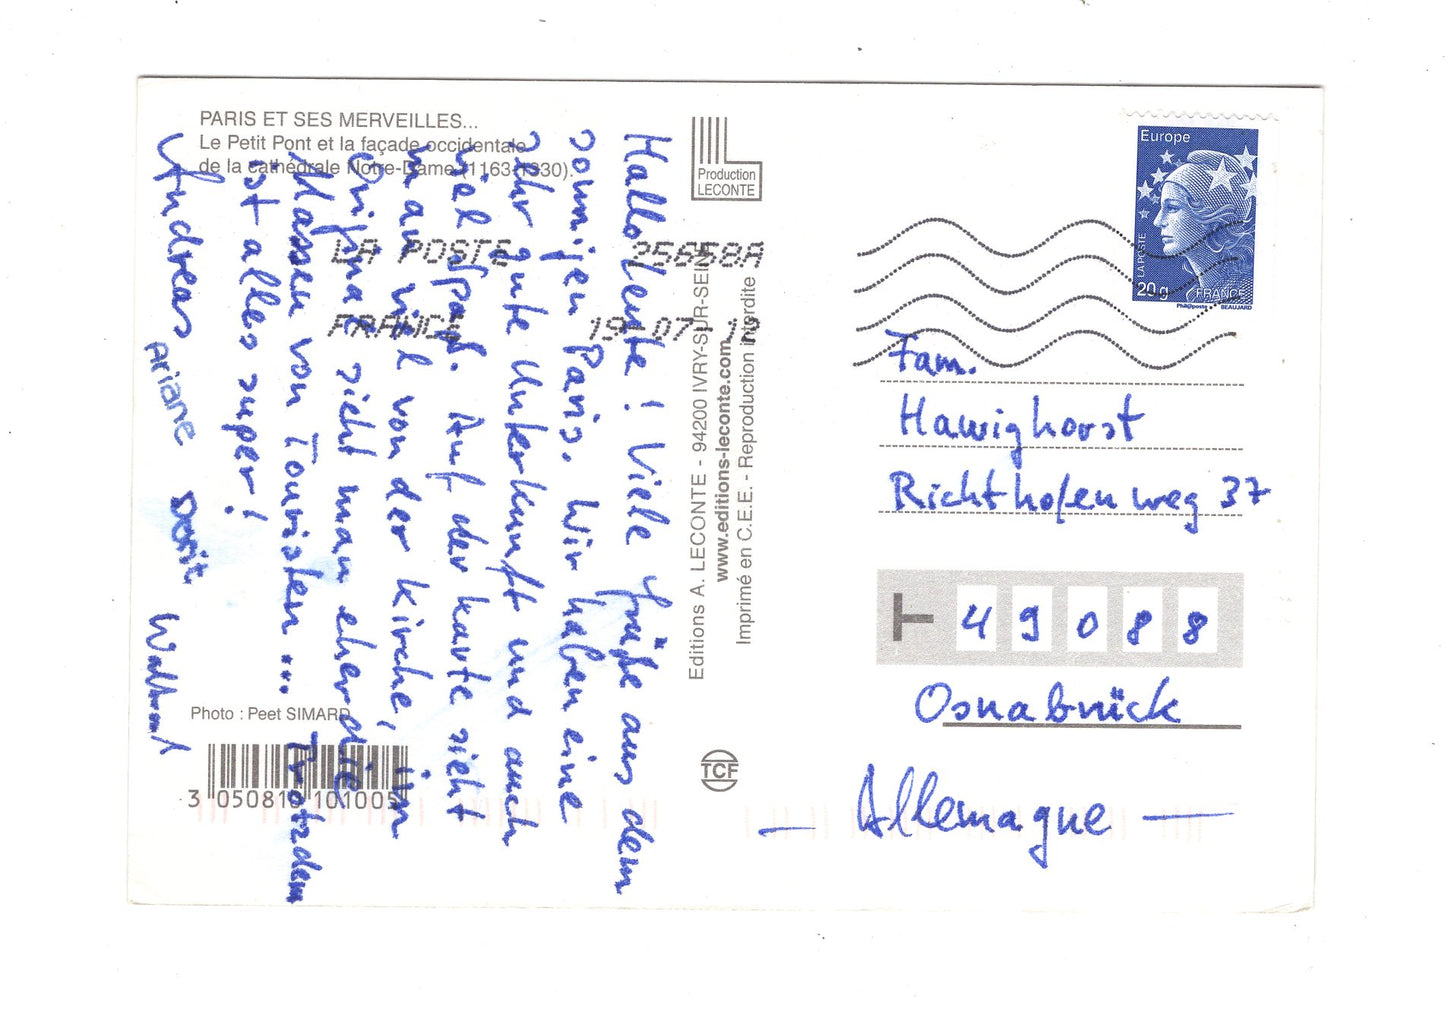 PARIS ET SES MERVEILLES...
Le Petit Pont et la façade occidentale
de la cathédrale Notre-Dame (1163-1330).
Hallo Leute! Viele Grüße aus dem
sonnigen Paris. Wir haben eine
sehr gute Unterkunft und auch
viel Spaß. Auf der Karte sieht
man viel von der Kirche, im
Original sieht man eher die
Massen von Touristen... Trotzdem
ist alles super!
Andreas Ariane Dorit Waltraut
Photo : Peet SIMARD
3 050810 101005
Production
LECONTE
Editions A. LECONTE - 94200 IVRY-SUR-SEINE
www.editions-leconte.com
Imprimé en C.E.E. - Reproduction interdite
TCF
LA POSTE 25658A
FRANCE 19-07-12
Europe
LA POSTE
20g FRANCE
Phil@poste BEAUJARD
Fam.
Hawighorst
Richthofenweg 37
49088
Osnabrück
- Allemagne -